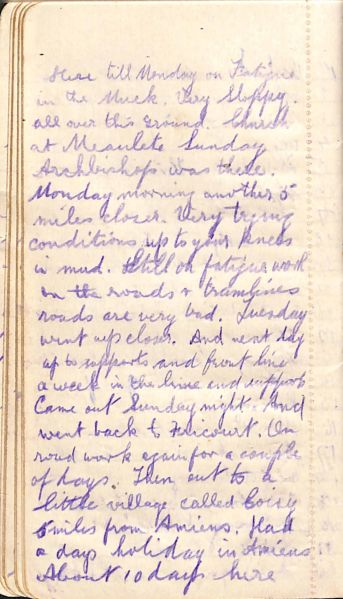 Here till Monday on Fatigue
in the Muck. Very Sloppy.
all over this Ground. Church
at Meaulete Sunday
Archbishop was there.
Monday morning another 5
miles closer. Very trying
conditions up to your knees
in mud. Still on fatigue work
on the roads & tramlines
roads are very bad. Tuesday
went up closer. And next day
up to supports and front line
a week in the line and supports
Came out Sunday night. And
went back to Fricourt. On
road work again for a couple
of days. Then out to a
little village called Coisy
5 miles from Amiens. Had
a days holiday in Amiens
About 10 days here